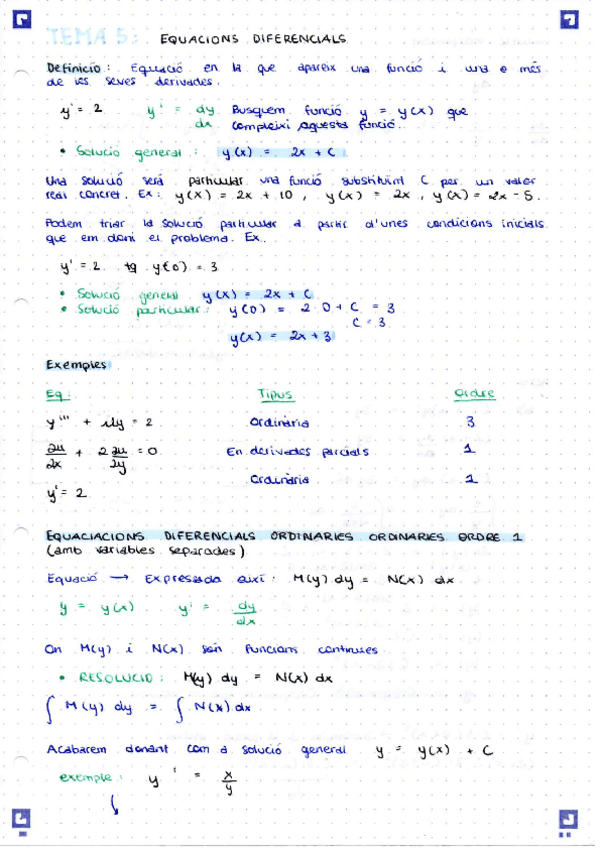 TEMA 5: EQUACIONS DIFERENCIALS
Definició: Equació en la que apareix una funció i una o més
de les seves derivades.
y' = 2 y' = dy/dx Busquem funció y = y(x) que
compleixi aquesta funció.
• Solució general: y(x) = 2x + C
Una solució serà particular una funció substituint C per un valor
real concret. Ex: y(x) = 2x + 10, y(x) = 2x, y(x) = 2x - 5.
Podem triar la solució particular a partir d'unes condicions inicials
que em doni el problema. Ex.
y' = 2 tq y(0) = 3
• Solució general y(x) = 2x + C
• Solució particular: y(0) = 2·0 + C = 3
C = 3
y(x) = 2x + 3
Exemples
Eq: Tipus Ordre
y''' + = 2 Ordinària 3
∂u/∂x + 2 ∂u/∂y = 0 En derivades parcials 1
y' = 2 Ordinària 1
EQUACIACIONS DIFERENCIALS ORDINARIES ORDINARIES ORDRE 1
(amb variables separades)
Equació → Expressada així: M(y) dy = N(x) dx
y = y(x) y' = dy/dx
On M(y) i N(x) són funcions contínues
• RESOLUCIÓ: M(y) dy = N(x) dx
∫ M(y) dy = ∫ N(x) dx
Acabarem donant com a solució general y = y(x) + C
exemple: y' = x/y